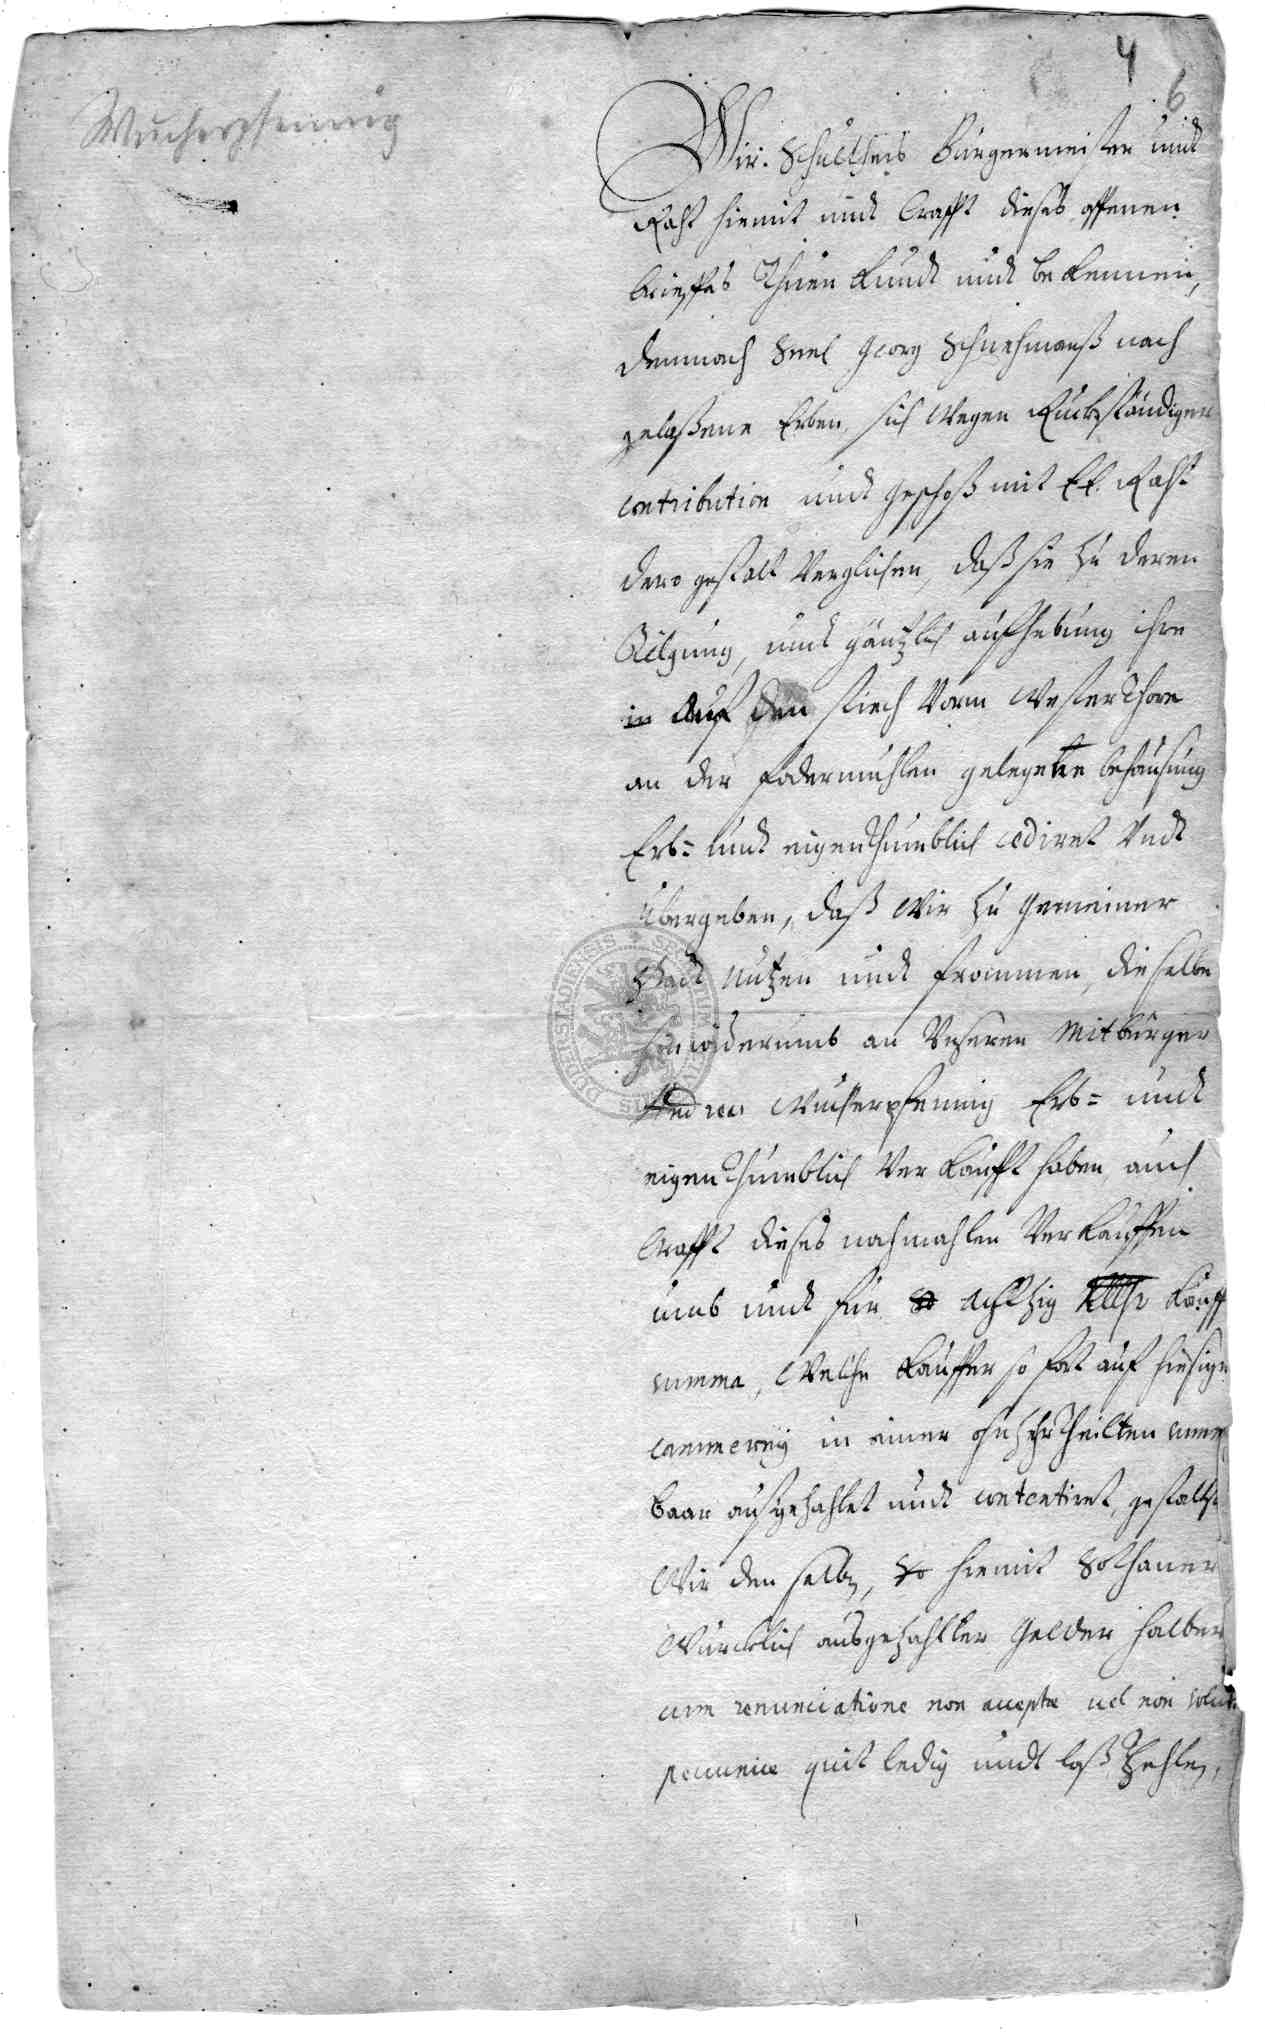 4
6
Wucherpfennig
Wir. Schultheis Bürgermeister undt
Raht hiemit undt Crafft dieses offenen
brieffes Thuen kundt undt bekennen,
demnach Seel Georg Schuehmanß nach
gelaßene Erben, sich wegen Rückständiger
contribution undt geschoß mit E. E. Raht
dero gestalt verglichen, daß sie zu deren
Tilgung, undt gäntzlich aufhebung ihre
in Auf den stiech Vorm Westerthore
an der Fodermühlen gelegene behausung
Erb= undt eigenthumblich cediret Undt
übergeben, daß Wir zu Gemeiner
Stadt Nutzen undt frommen, dieselbe
hinwiderumb an Unseren Mitbürger
Andreas Wucherpfennig Erb= undt
eigenthumblich Verkaufft haben, auch
Crafft dieses nachmahlen Verkauffen
umb undt für achtzig Kauff
summa, Welche Kauffer so fort auf hiesige
cammerey in einer ohnzertheilten summa
baar außgezahlet undt contentiret, gestalt
Wir den selben, hiemit Sothaner
Würcklich ausgezahlter Gelder halber
cum renunciatione non acceptae vel non solut.
pecuniae quit ledig undt loß Zehlen,
SPECTRUM
DUDERSTADIENSIS